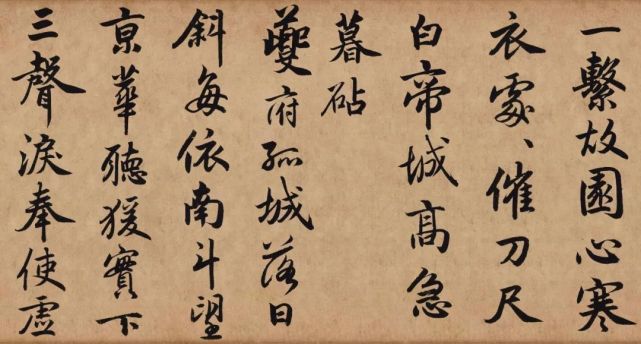 一繫故園心寒
衣處、催刀尺
白帝城高急
暮砧
夔府孤城落日
斜每依南斗望
京華聽猨實下
三聲淚奉使虛